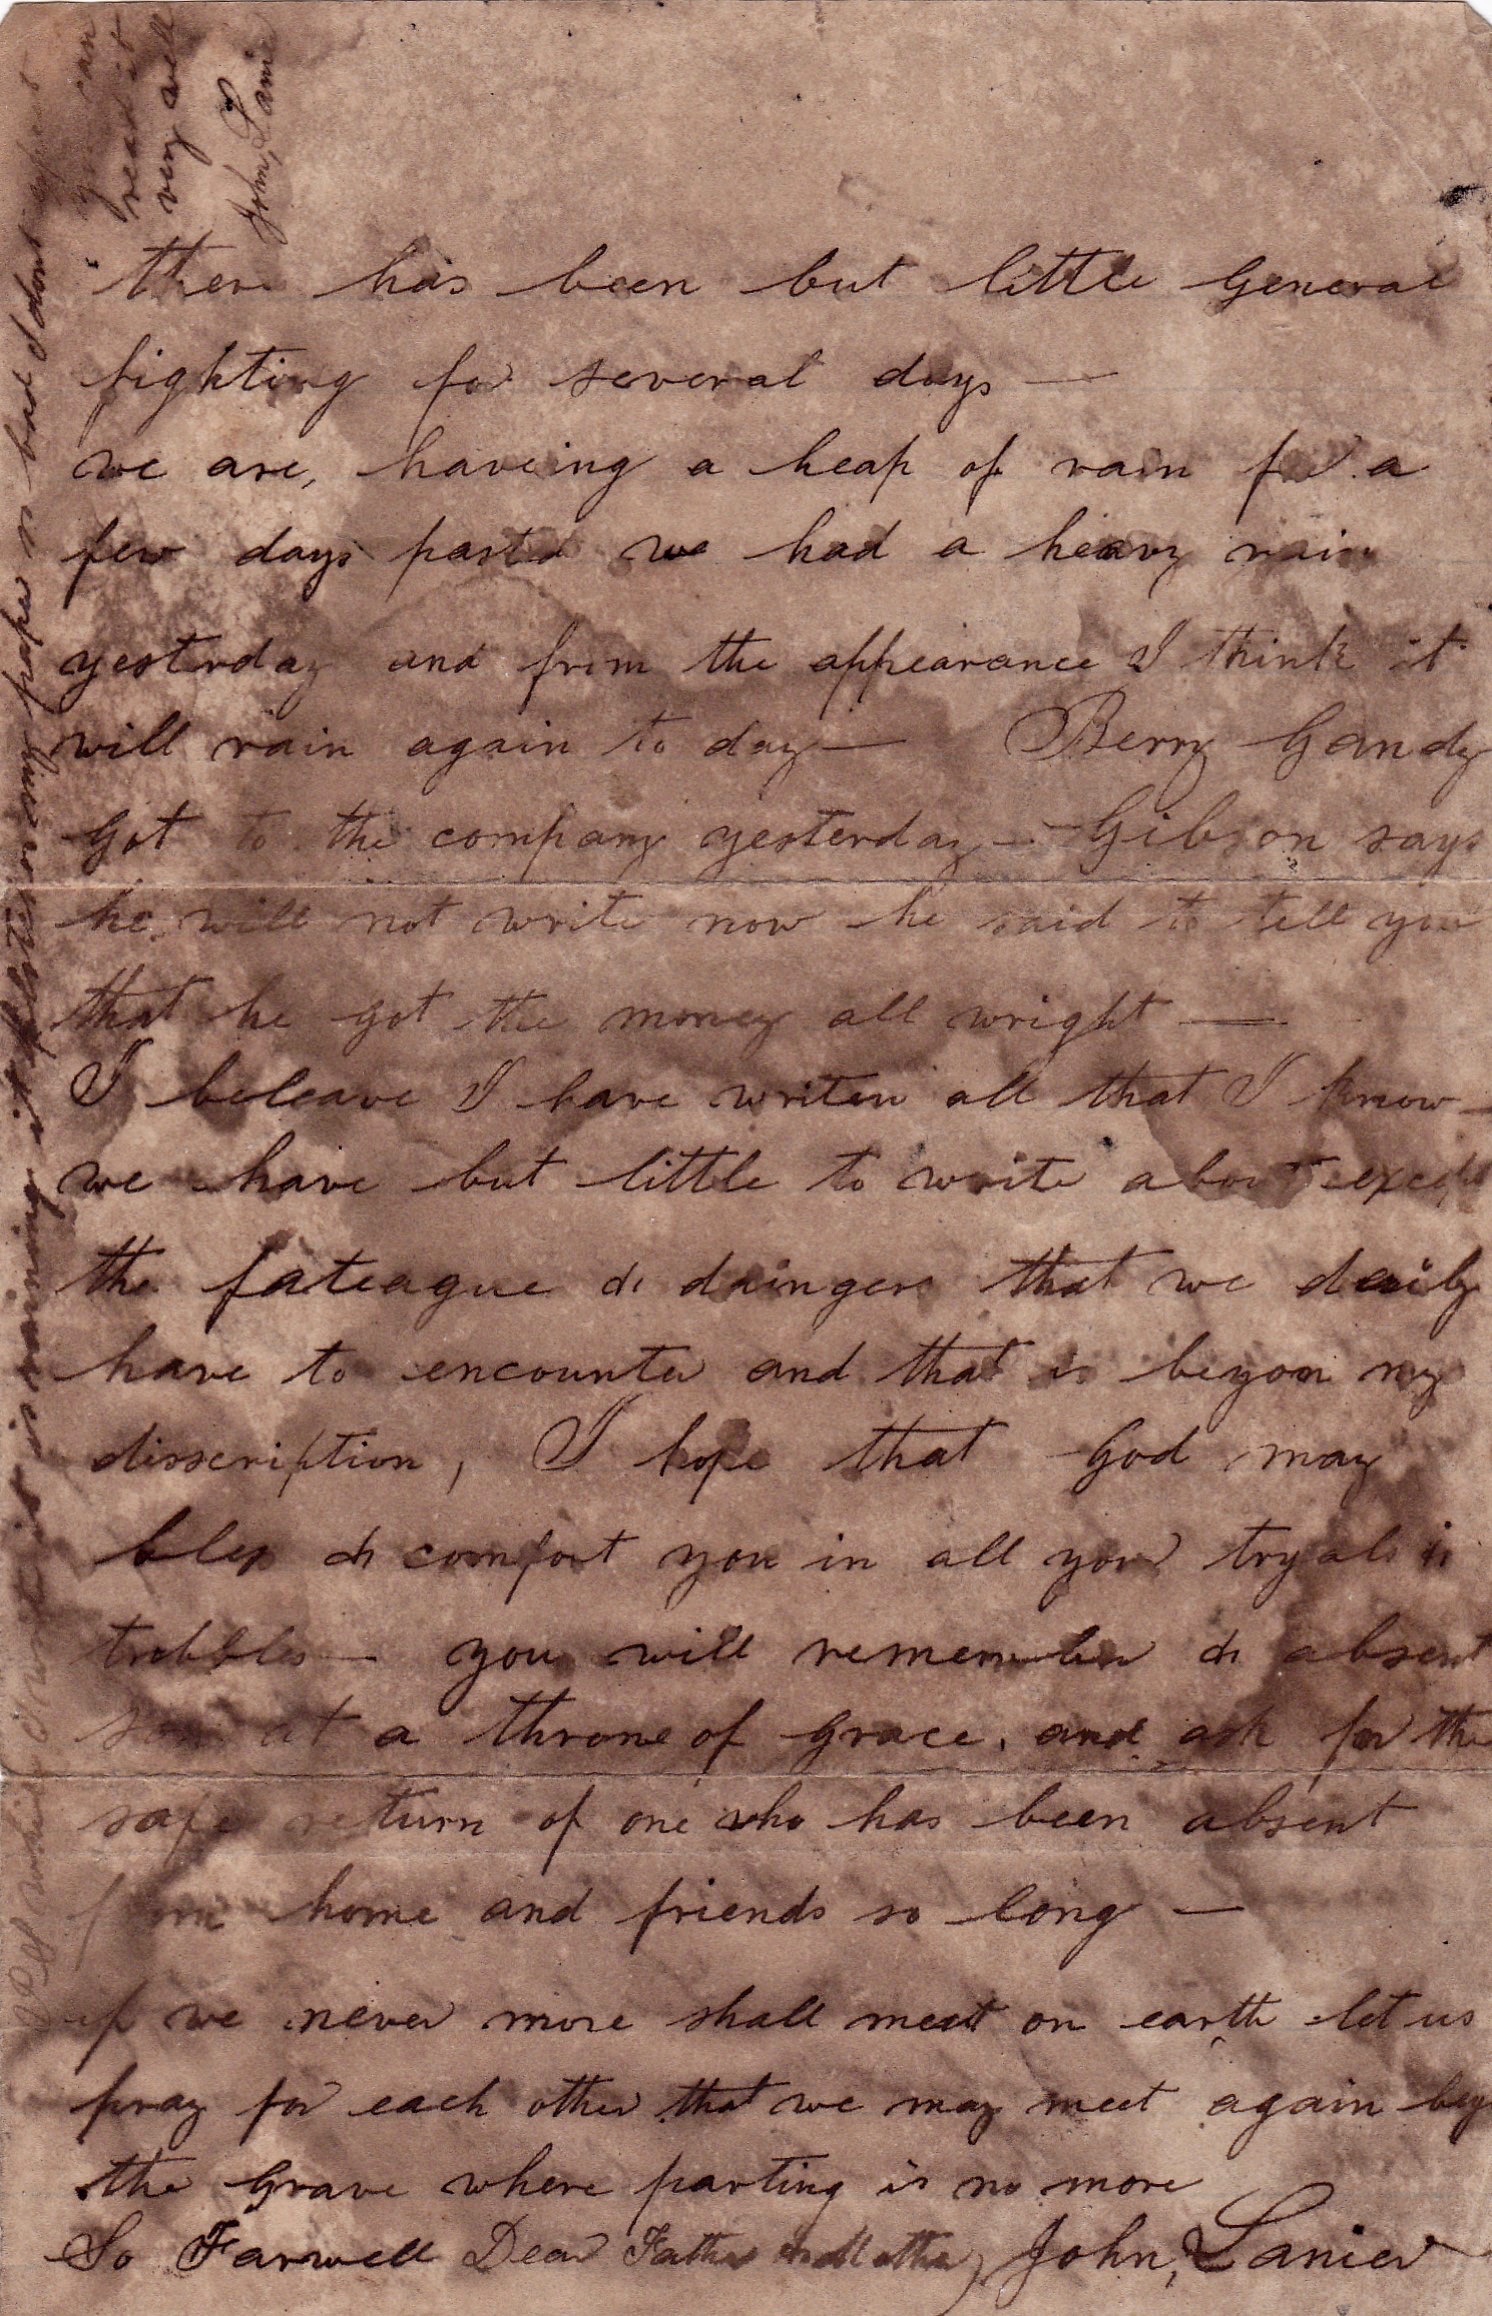 there has been but little General
fighting for several days —
we are, haveing a heap of rain for a
few days past we had a heavy rain
yesterday and from the appearance I think it
will rain again to day — Berry Gandy
Got to the company yesterday — Gibson says
he will not write now he said to tell you
that he got the money all wright —
I beleave I have writen all that I know —
we have but little to write about except
the fateague & daingers that we daily
have to encounter and that is beyon my
disscription, I hope that God may
bless & comfort you in all your tryals &
trobbles — you will remember & absent
son at a throne of Grace. and ask for the
safe return of one who has been absent
from home and friends so long —
if we never more shall meet on earth let us
pray for each other that we may meet again bey
the Grave where parting is no more
So Farwell Dear Father and Mother, John, Lanier
PS while I write it is raining it is wetting my paper so bad I dont expect
you can
read it
very well
John, Lanier